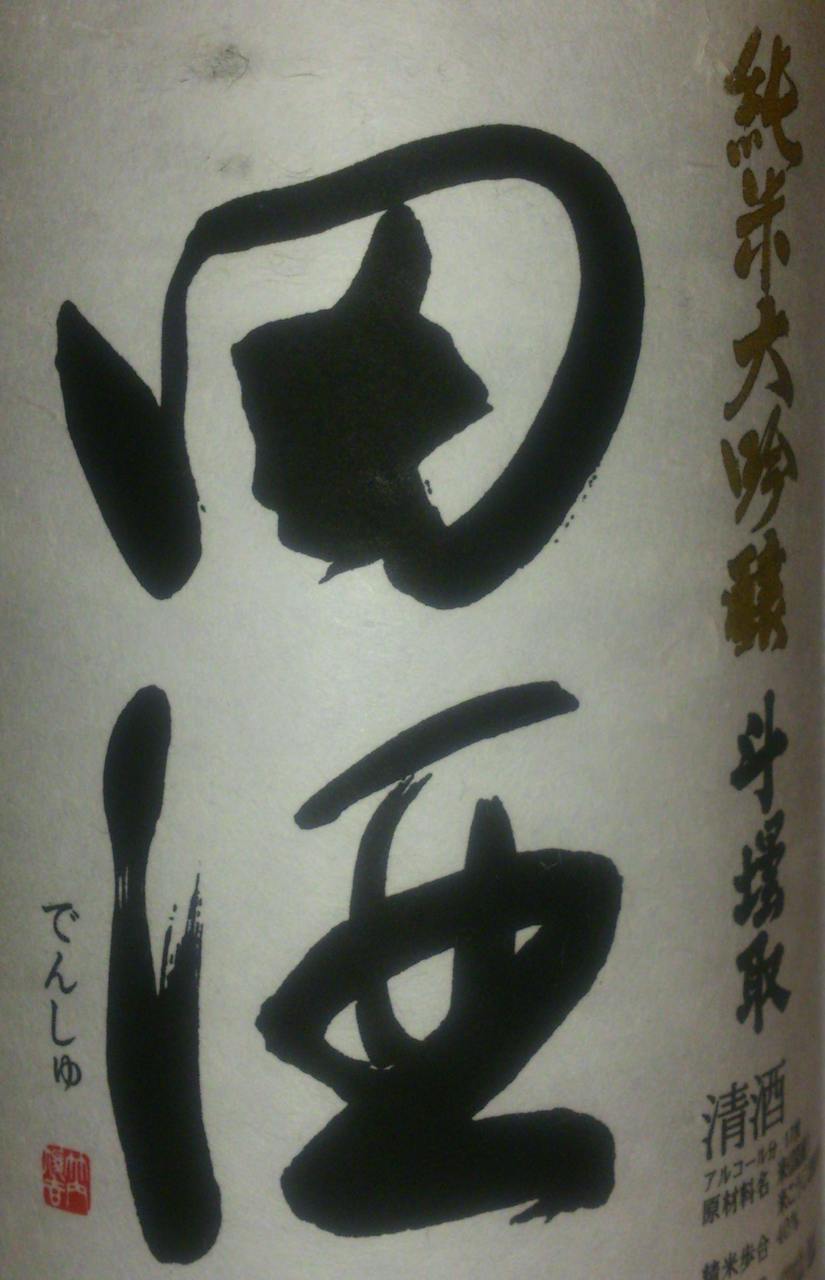 純米大吟醸
斗壜取
田酒
でんしゅ
清酒
アルコール分
原材料名
精米歩合 40%